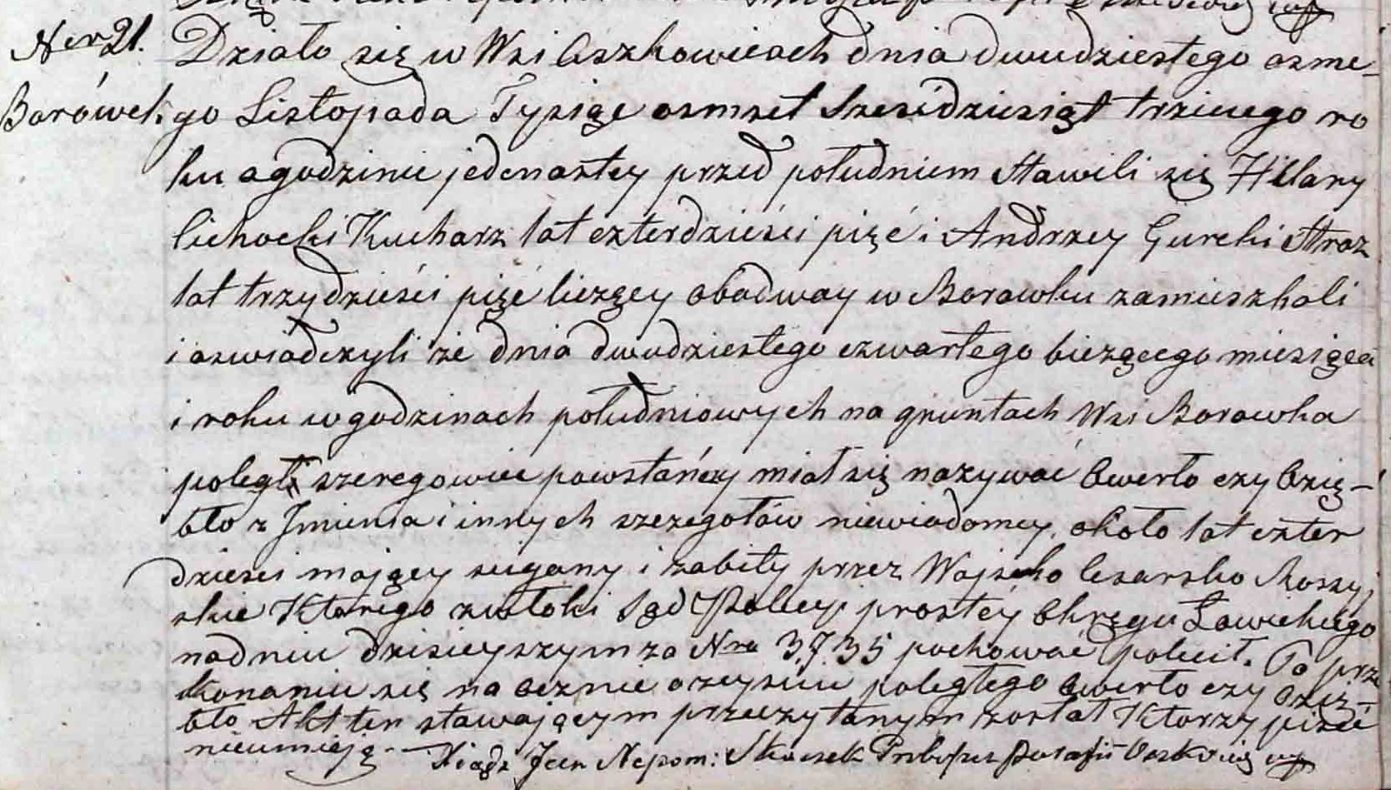 Ner 21. Działo się w Wsi Oszkowicach dnia dwudziestego osme-
Borówek go Listopada Tysiąc osmset sześćdziesiąt trzeciego ro
ku o godzinie jedenastey przed południem stawili się Hilary
Cichocki Kucharz lat czterdzieści pięć i Andrzey Gurski Straz
lat trzydzieści pięć liczący obadway w Borowku zamieszkali
i oswiadczyli że dnia dwudziestego czwartego bieżącego miesiąca
i roku w godzinach południowych na gruntach Wsi Borowka
poległ szeregowiec powstańczy miał się nazywać Owerło czy Ozię-
bło z Jmienia i innych szczegołów niewiadomey, około lat czter
dzieści mający scigany i zabity przez Woysko Cesarsko Rossyj
skie Którego zwłoki Sąd Policyi prostéy Okręgu Łowickiego
nad niu dzisieyszym za Nro 3735 pochować polecił. Po prze
konaniu się naocznie o zeysciu poległego Owerło czy Ozię-
bło Akt ten stawającym przeczytanym został Ktorzy pisać
nieumieją. Xiądz Jan Nepom: Skaczek Prob: